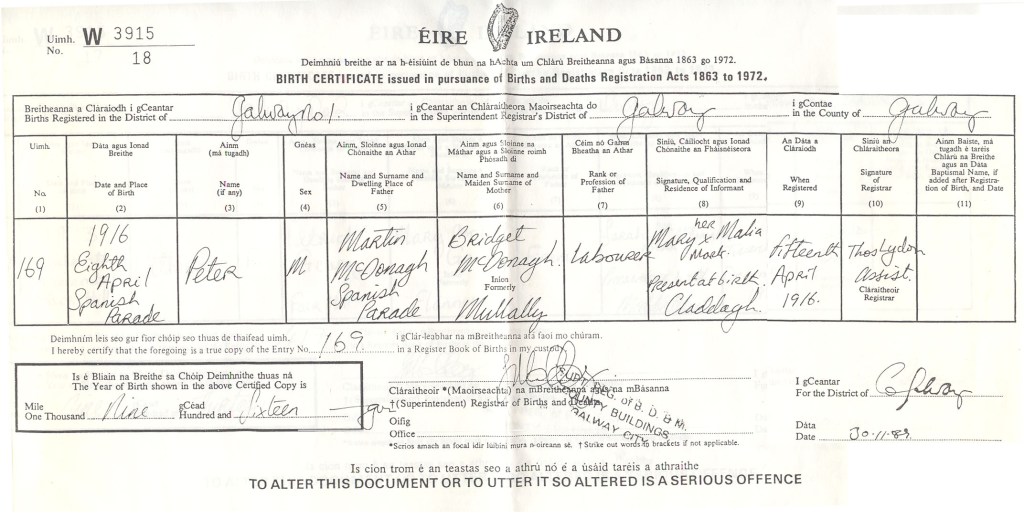 Uimh. No. W 3915
18
ÉIRE IRELAND
Deimhniú breithe ar na h-éisiúint de bhun na hAchta um Chlárú Breitheanna agus Básanna 1863 go 1972.
BIRTH CERTIFICATE issued in pursuance of Births and Deaths Registration Acts 1863 to 1972.
Breitheanna a Cláraíodh i gCeantar
Births Registered in the District of Galway no 1.
i gCeantar an Chláraitheora Maoirseachta do
in the Superintendent Registrar's District of Galway
i gContae
in the County of Galway
Uimh.
No.
(1)
Dáta agus Ionad Breithe
Date and Place of Birth
(2)
Ainm (má tugadh)
Name (if any)
(3)
Gnéas
Sex
(4)
Ainm, Sloinne agus Ionad Chónaithe an Athar
Name and Surname and Dwelling Place of Father
(5)
Ainm agus Sloinne na Máthar agus a Sloinne roimh Phósadh di
Name and Surname and Maiden Surname of Mother
(6)
Céim nó Gairm Bheatha an Athar
Rank or Profession of Father
(7)
Síniú, Cáilíocht agus Ionad Chónaithe an Fháisnéiseora
Signature, Qualification and Residence of Informant
(8)
An Dáta a Cláraíodh
When Registered
(9)
Síniú an Chláraitheora
Signature of Registrar
(10)
Ainm Baiste, má tugadh é taréis Chlárú na Breithe agus an Dáta
Baptismal Name, if added after Registration of Birth, and Date
(11)
169
1916
Eighth
April
Spanish
Parade
Peter
M
Martin
McDonagh
Spanish
Parade
Bridget
McDonagh.
Inios
Formerly
Mullally
Labourer
her
Mary x Malia
Mark.
Present at birth.
Claddagh.
Fifteenth
April
1916.
Thos Lydon
Assist.
Cláraitheoir
Registrar
Deimhním leis seo gur fíor chóip seo thuas de thaifead uimh.
I hereby certify that the foregoing is a true copy of the Entry No. 169
i gClár-leabhar na mBreitheanna atá faoi mo chúram.
in a Register Book of Births in my custody.
Is é Bliain na Breithe sa Chóip Deimhnithe thuas ná
The Year of Birth shown in the above Certified Copy is
Mile
One Thousand Nine
gCéad
Hundred and Sixteen
Cláraitheoir *(Maoirseachta) na mBreitheanna agus na mBásanna
†(Superintendent) Registrar of Births and Deaths
Oifig
Office
SUPT. REG. of B. D. & M.
COUNTY BUILDINGS,
GALWAY CITY.
*Scrios amach an focal idir lúibíní mura n-oireann sé. † Strike out words in brackets if not applicable.
I gCeantar
For the District of Galway
Dáta
Date 30-11-89.
Is cion trom é an teastas seo a athrú nó é a úsáid taréis a athraithe
TO ALTER THIS DOCUMENT OR TO UTTER IT SO ALTERED IS A SERIOUS OFFENCE